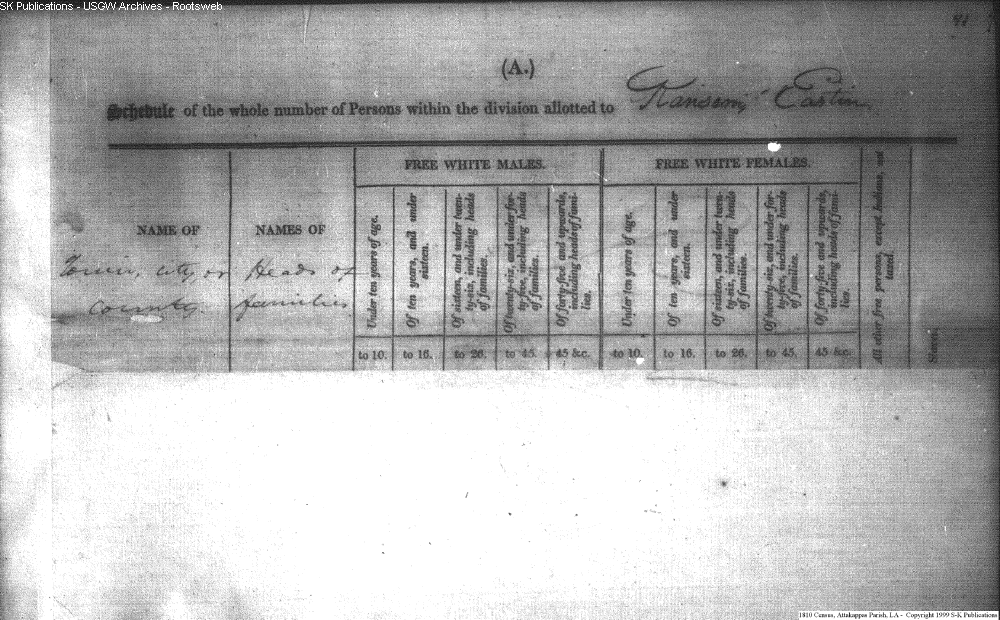 SK Publications - USGW Archives - Rootsweb
(A.)
Schedule of the whole number of Persons within the division allotted to Eastin
FREE WHITE MALES.
FREE WHITE FEMALES.
NAME OF
Town, city, or
county.
NAMES OF
Heads of
families
Under ten years of age.
Of ten years, and under
sixteen.
Of sixteen, and under twen-
ty-six, including heads
of families.
Of twenty-six, and under for-
ty-five, including heads
of families.
Of forty-five and upwards,
including heads of fami-
lies.
Under ten years of age.
Of ten years, and under
sixteen.
Of sixteen, and under twen-
ty-six, including heads
of families.
Of twenty-six, and under for-
ty-five, including heads
of families.
Of forty-five and upwards,
including heads of fami-
lies.
All other free persons, except Indians, not
taxed.
Slaves.
to 10. to 16. to 26. to 45. 45 &c. to 10. to 16. to 26. to 45. 45 &c.
1810 Census, Attakappas Parish, LA - Copyright 1999 S-K Publications